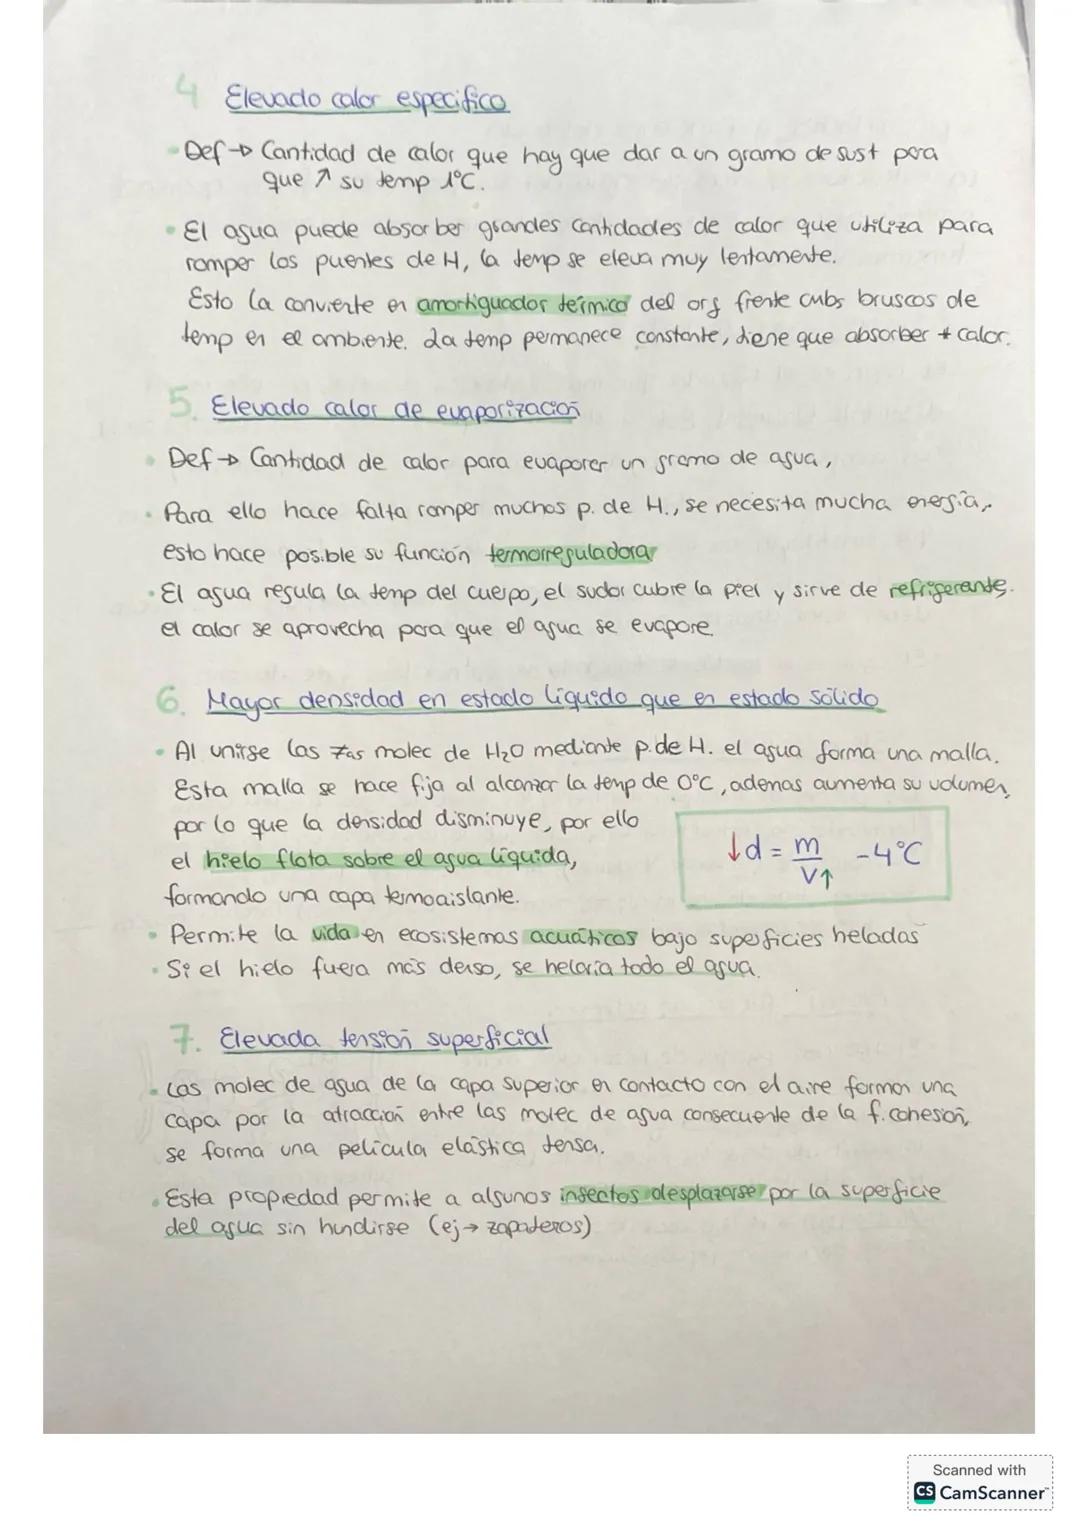 4 Elevado calor especifico
Def → Cantidad de calor que hay que dar a un gramo de sust para
que ↗ su temp 1°C.
El agua puede absorber grandes cantidades de calor que utiliza para
romper los puentes de H, la temp se eleva muy lentamente.
Esto la convierte en amortiguador térmico del org frente cambs bruscos de
temp en el ambiente. La temp permanece constante, tiene que absorber + calor.
5. Elevado calor de evaporización
Def → Cantidad de calor para evaporar un gramo de agua,
Para ello hace falta romper muchos p. de H., se necesita mucha energía,
esto hace posible su función termorreguladora
El agua regula la temp del cuerpo, el sudor cubre la piel y sirve de refrigerante.
el calor se aprovecha para que el agua se evapore.
6. Mayor densidad en estado líquido que en estado sólido
Al unirse las ≠as molec de H₂O mediante p. de H. el agua forma una malla.
Esta malla se hace fija al alcanzar la temp de 0°C, ademas aumenta su volumen,
por lo que la densidad disminuye, por ello
el hielo flota sobre el agua líquida,
↓d = m/V↑ -4°C
formando una capa termoaislante.
Permite la vida en ecosistemas acuáticos bajo superficies heladas
Si el hielo fuera más denso, se helaría todo el agua.
7. Elevada tensión superficial
Las molec de agua de la capa superior en contacto con el aire forman una
capa por la atracción entre las molec de agua consecuente de la f. cohesión,
se forma una película elástica tensa.
Esta propiedad permite a algunos insectos desplazarse por la superficie
del agua sin hundirse (ej → zapateros)
Scanned with
CS CamScanner